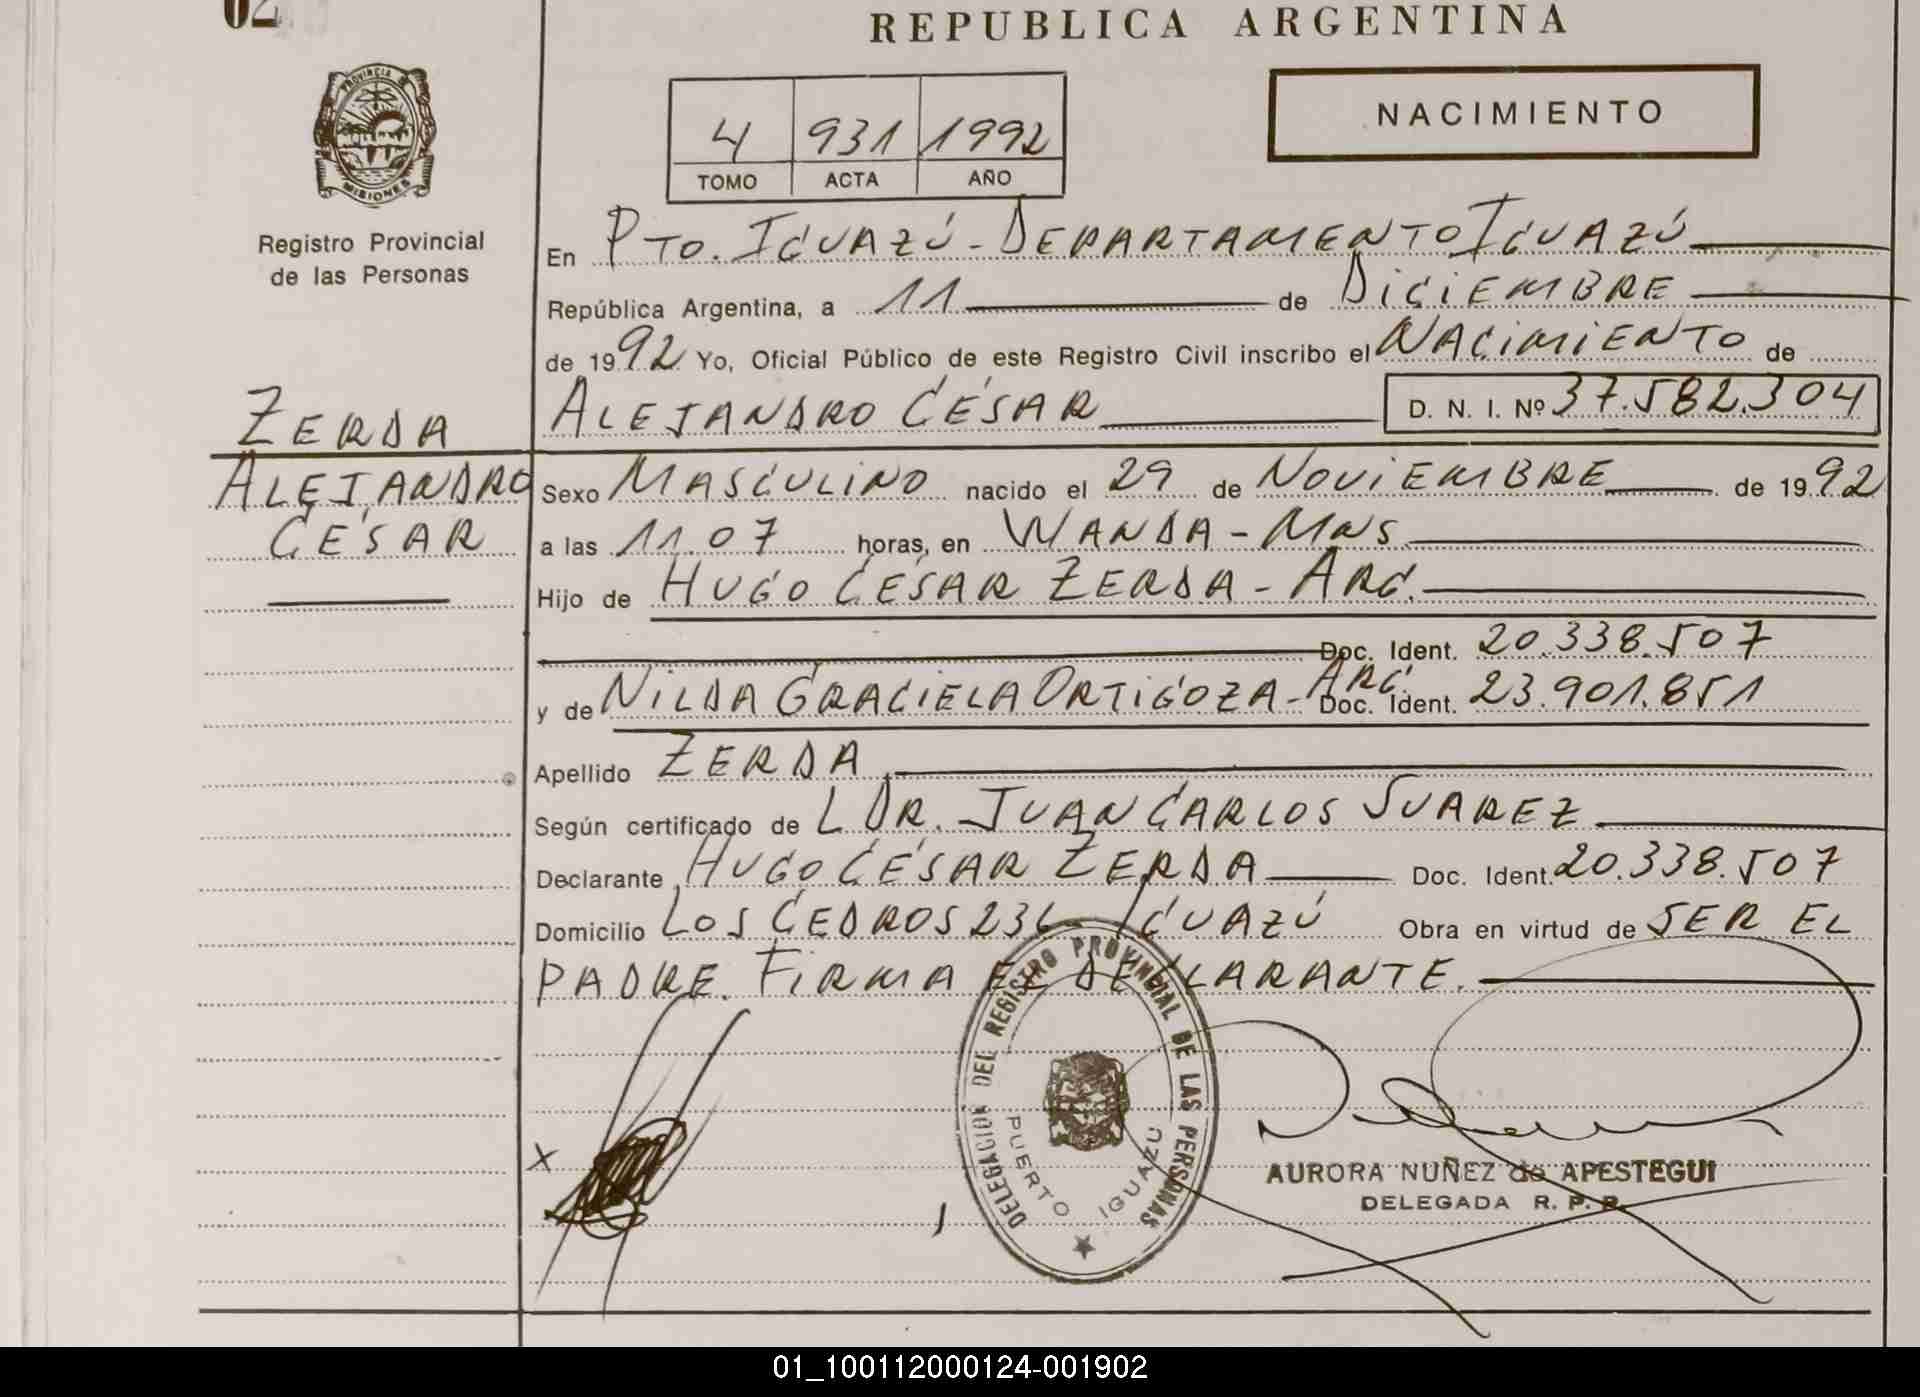 02
REPUBLICA ARGENTINA
PROVINCIA DE
MISIONES
Registro Provincial
de las Personas
4 931 1992
TOMO ACTA AÑO
NACIMIENTO
En PTO. IGUAZÚ - DEPARTAMENTO IGUAZÚ
República Argentina, a 11 de DICIEMBRE
de 1992 Yo, Oficial Público de este Registro Civil inscribo el NACIMIENTO de
ALEJANDRO CÉSAR D. N. I. Nº 37.582.304
ZERDA
ALEJANDRO
CÉSAR
Sexo MASCULINO nacido el 29 de NOVIEMBRE de 1992
a las 11.07 horas, en WANDA - MNS
Hijo de HUGO CÉSAR ZERDA - ARG.
Doc. Ident. 20.338.507
y de NILDA GRACIELA ORTIGOZA - ARG. Doc. Ident. 23.901.851
Apellido ZERDA
Según certificado de L DR. JUAN CARLOS SUAREZ
Declarante HUGO CÉSAR ZERDA Doc. Ident. 20.338.507
Domicilio LOS CEDROS IGUAZÚ Obra en virtud de SER EL
PADRE. FIRMA EL DECLARANTE.
X
DELEGACION DEL REGISTRO PROVINCIAL DE LAS PERSONAS
PUERTO IGUAZU
AURORA NUÑEZ de APESTEGUI
DELEGADA R. P. P.
01_100112000124-001902